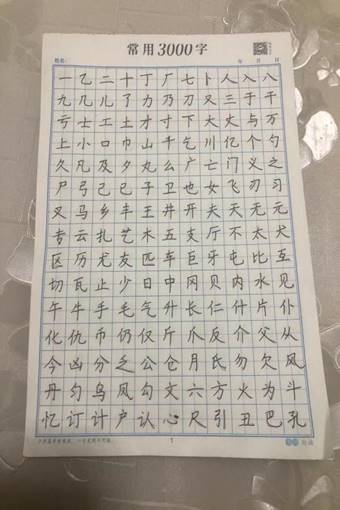 常用3000字
姓名: 年 月 日
一乙二十丁厂七卜人入八
九几儿了力乃刀又三于干
亏士工土才寸下大丈与万
上小口巾山千乞川亿个勺
久凡及夕丸么广亡门义之
尸弓己已子卫也女飞刃习
叉马乡丰王井开夫天无元
专云扎艺木五支厅不太犬
区历尤友匹车巨牙屯比互
切瓦止少日中冈贝内水见
午牛手毛气升长仁什片仆
化仇币仍仅斤爪反介父从
今凶分乏公仓月氏勿欠风
丹匀乌凤勾文六方火为斗
忆订计户认心尺引丑巴孔
1